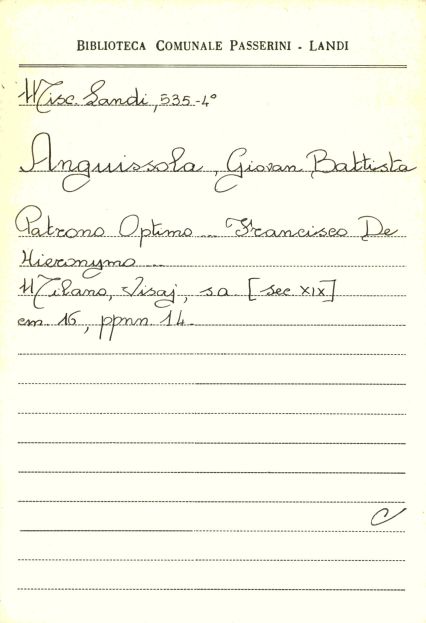 BIBLIOTECA COMUNALE PASSERINI - LANDI
Misc. Landi, 535.-4°
Anguissola, Giovan Battista
Patrono Optimo ... Francisco De
Hieronymo ...
Milano, Visaj, s.a. [sec. XIX]
cm. 16, ppnn. 14.
C